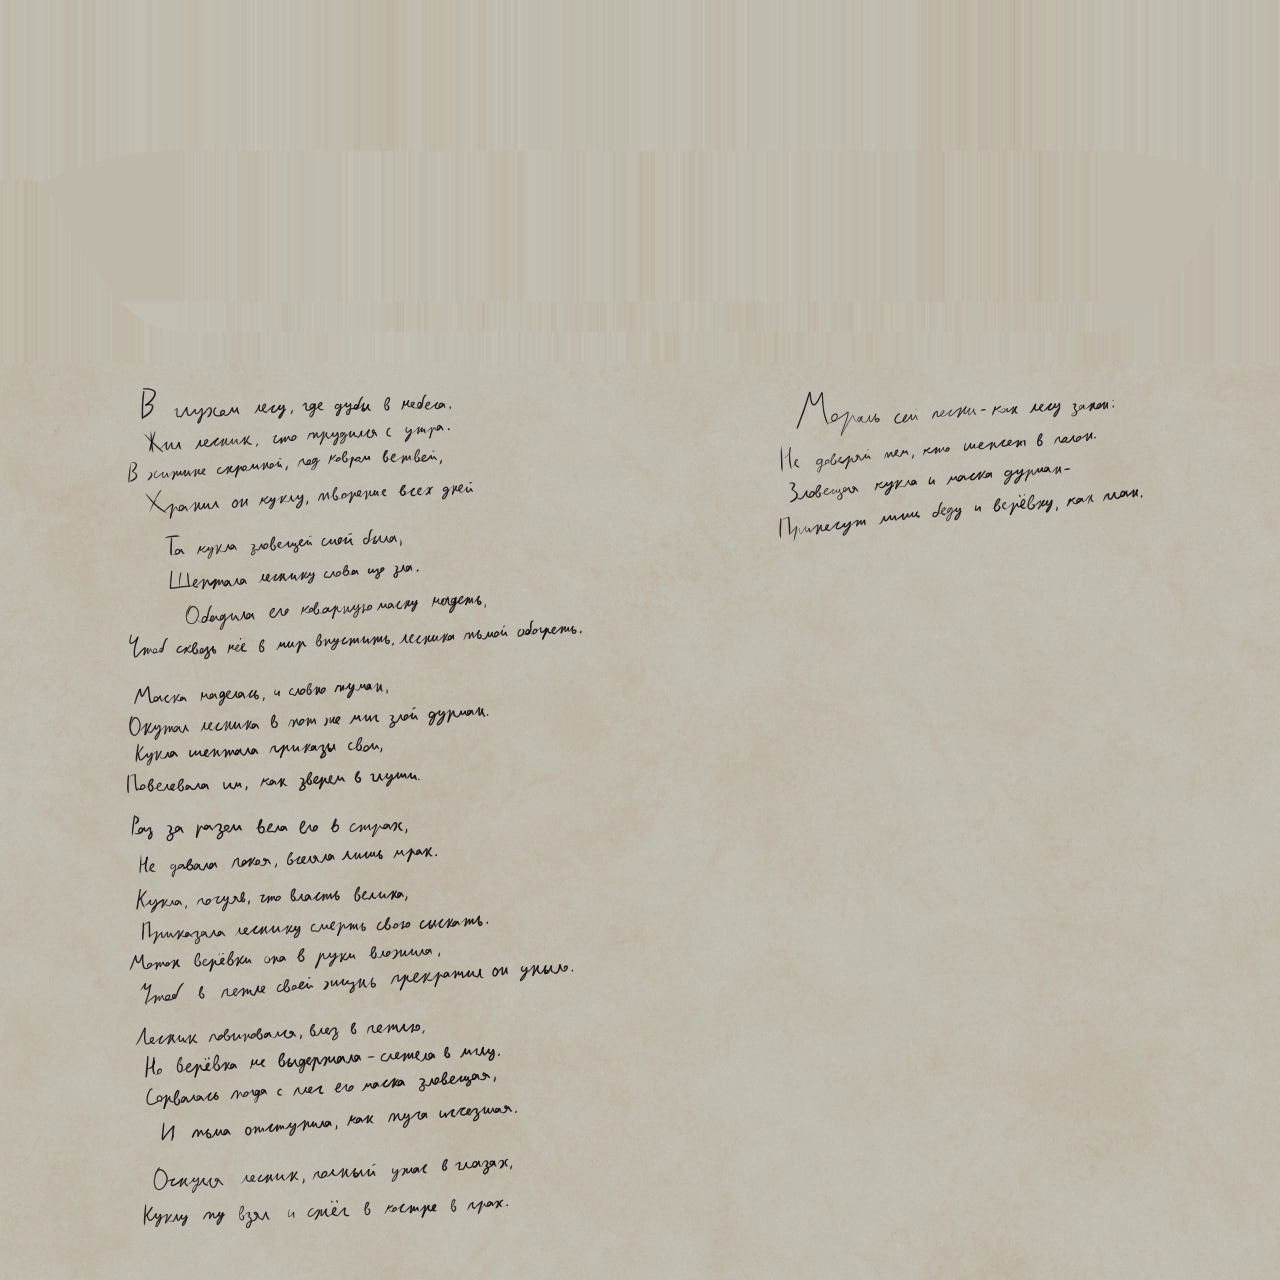 В глухом лесу, где дубы в небеса.
Жил лесник, сто трудился с утра.
В хижине скромной, под ковром ветвей,
Хранил он куклу, творение всех дней
Та кукла зловещей силой была,
Шептала леснику слова що зла.
Обадила его коварную маску надеть,
Чтоб сквозь неё в мир впустить, лесника тьмой обогреть.
Маска наделась, и словно туман,
Окутал лесника в тот же миг злой дурман.
Кукла шептала приказы свои,
Повелевала им, как зверем в глуши.
Раз за разом вела его в страх,
Не давала покоя, вселяла лишь мрак.
Кукла, почуяв, что власть велика,
Приказала леснику смерть свою сыскать.
Моток верёвки она в руки вложила,
Чтоб в петле своей жизнь прекратил он уныло.
Лесник повиновался, влез в петлю,
Но верёвка не выдержала - слетела в мглу.
Сорвалась тогда с лег его маска зловещая,
И тьма отступила, как туча исчезшая.
Очнулся лесник, полный ужас в глазах,
Куклу ту взял и сжёг в костре в прах.
Мораль сей песни - как лесу закон:
Не доверяй тем, кто шепчет в полон.
Зловещая кукла и маска дурман-
Принесут лишь беду и верёвку, как план.